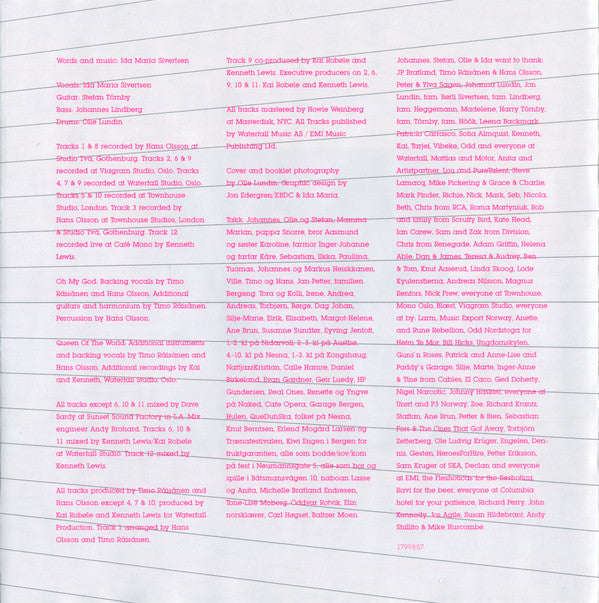 Words and music: Ida Maria Sivertsen
Vocals: Ida Maria Sivertsen
Guitar: Stefan Törnby
Bass: Johannes Lindberg
Drums: Olle Lundin
Tracks 1 & 8 recorded by Hans Olsson at
Studio Tva, Gothenburg. Tracks 2, 6 & 9
recorded at Viagram Studio, Oslo. Tracks
4, 7 & 9 recorded at Waterfall Studio, Oslo.
Tracks 5 & 10 recorded at Townhouse
Studio, London. Track 3 recorded by
Hans Olsson at Townhouse Studios, London
& Studio Tva, Gothenburg. Track 12
recorded live at Café Mono by Kenneth
Lewis.
Oh My God. Backing vocals by Timo
Räisänen and Hans Olsson, Additional
guitars and harmonium by Timo Räisänen.
Percussion by Hans Olsson.
Queen Of The World. Additional instruments
and backing vocals by Timo Räisänen and
Hans Olsson. Additional recordings by Kai
and Kenneth, Waterfall Studio, Oslo.
All tracks except 6, 10 & 11 mixed by Dave
Sardy at Sunset Sound Factory in L.A. Mix
engineer Andy Brohard. Tracks 6, 10 &
11 mixed by Kenneth Lewis/Kai Robøle
at Waterfall Studio. Track 12 mixed by
Kenneth Lewis.
All tracks produced by Timo Räisänen and
Hans Olsson except 4, 7 & 10, produced by
Kai Robøle and Kenneth Lewis for Waterfall
Production. Track 1 arranged by Hans
Olsson and Timo Räisänen.
Track 9 co-produced by Kai Robøle and
Kenneth Lewis. Executive producers on 2, 6,
9, 10 & 11: Kai Robøle and Kenneth Lewis.
All tracks mastered by Howie Weinberg
at Masterdisk, NYC. All Tracks published
by Waterfall Music AS / EMI Music
Publishing Ltd.
Cover and booklet photography
by Olle Lundin. Graphic design by
Jon Edergren/EBDC & Ida Maria.
Takk: Johannes, Olle og Stefan, Mamma
Marian, pappa Snorre, bror Aasmund
og søster Karoline, farmor Inger-Johanne
og farfar Kåre, Sebastian, Iikka, Pauliina,
Tuomas, Johannes og Markus Heiskkanen,
Ville, Timo og Hans, Jan-Petter, familien
Bergeng, Tora og Kolli, Irene, Andrea,
Andreas, Torbjørn, Børge, Dag Johan,
Silje-Marie, Eirik, Elisabeth, Margot-Helene,
Ane Brun, Susanne Sundfør, Eyving Jentoft,
1-2. kl på Nidarvoll, 2-3. kl på Austbø,
4.-10. kl på Nesna, 1.-3. kl på Kongshaug,
NattjazzKristian, Calle Hamre, Daniel
Birkeland, Ryan Gardner, Geir Luedy, HP
Gundersen, Real Ones, Renette og Yngve
på Naked, Cafe Opera, Garage Bergen,
Hulen, QueDuhSka, folket på Nesna,
Knut Bernitsen, Erlend Mogård Larsen og
Trænafestivalen, Kiwi Engen i Bergen for
fruktgarantien, alle som bodde/sov/kom
på fest i Neumannsgate 5, alle som bor og
spille i Båtsmansvägen 10, naboan Lasse
og Anita, Michelle Bratland Endresen,
Tone-Lise Moberg, Oddvar Rotvik, Elin
norsklærer, Carl Høgset, Baltzer Moen.
Johannes, Stefan, Olle & Ida want to thank:
JP Bratland, Timo Räisänen & Hans Olsson,
Peter & Ylva Sagen, Johanna Lundin, Jon
Lundin, fam. Berli Sivertsen, fam. Lindberg,
fam. Heggemann, Madelene, Harry Törnby,
fam. Törnby, fam. Höök, Leena Backmark,
Patricio Carrasco, Sofia Almquist, Kenneth,
Kai, Tarjei, Vibeke, Odd and everyone at
Waterfall, Mattias and Motor, Anita and
Artistpartner, Lou and PureTalent: Steve
Lamacq, Mike Pickering & Grace & Charlie,
Mark Pinder, Richie, Nick, Mark, Seb, Nicola,
Beth, Chris from RCA, Roma Martyniuk, Rob
and Emily from Scruffy Bird, Kate Head,
Ian Carew, Sam and Zak from Division,
Chris from Renegade, Adam Griffin, Helena
Able, Dan & James, Teresa & Audrey, Ben
& Tom, Knut Aaserud, Linda Skoog, Lode
Kyulenstierna, Andreas Nilsson, Magnus
Renfors, Nick Frew, everyone at Townhouse,
Mono Oslo, Blæst, Viagram Studio, everyone
at by: Larm, Music Export Norway, Anette,
and Rune Rebellion, Odd Nordstoga for
Heim Te Mor, Bill Hicks, Ungdomskylen,
Guns´n Roses, Patrick and Anne-Lise and
Paddy´s Garage, Silje, Marte, Inger-Anne
& Tine from Cables, El Caco, Ged Doherty,
Nigel Narcotic, Johnny Haskett, everyone at
Urørt and P3 Norway, Zoe, Richard Krantz,
Staffan, Ane Brun, Petter & Bien, Sebastian
Fors & The Ones That Got Away, Torbjörn
Zetterberg, Ole Ludvig Krüger, Engelen, Den-
nis, Gesten, HeroesForHize, Petter Eriksson,
Sam Kruger of SKA, Declan and everyone
at EMI, the Fleshoticas for the fleshotica,
Ravi for the beer, everyone at Columbia
hotel for your patience, Richard Perry, John
Kennedy, Jos Agile, Susan Hildebrant, Andy
Shillito & Mike Hurcombe.
1799857